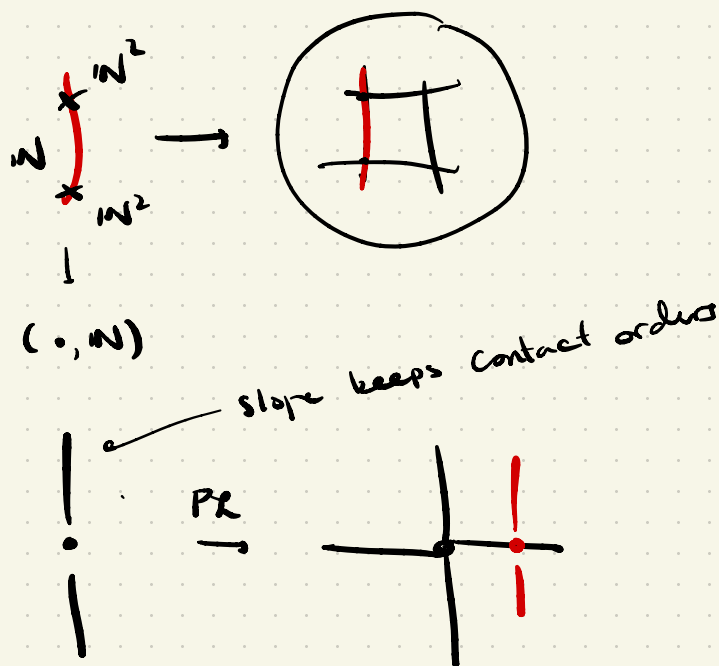 ℕ²
ℕ
ℕ²
(•, ℕ)
slope keeps contact orders
PL